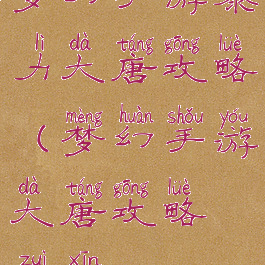 lì dà táng gōng lüè
力大唐攻略
mèng huàn shǒu yóu
（梦幻手游
dà táng gōng lüè
大唐攻略
zuì xīn